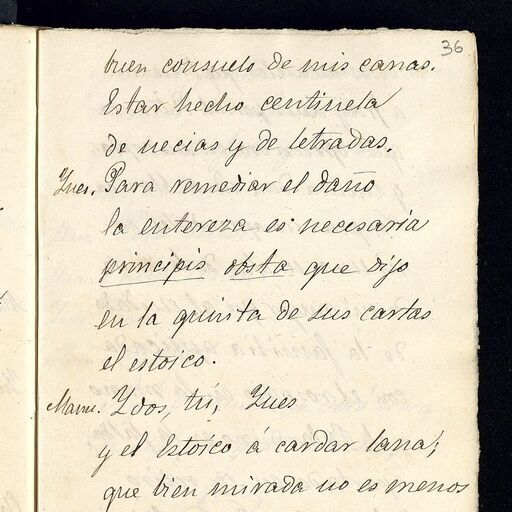 36
buen consuelo de mis canas.
Estar hecho centinela
de necias y de letradas.
Ynes. Para remediar el daño
la entereza es necesaria
principis obsta que dijo
en la quinta de sus cartas
el estoico.
Manu. Ydos, tú, Ynes
y el Estoico á cardar lana;
que bien mirada no es menos